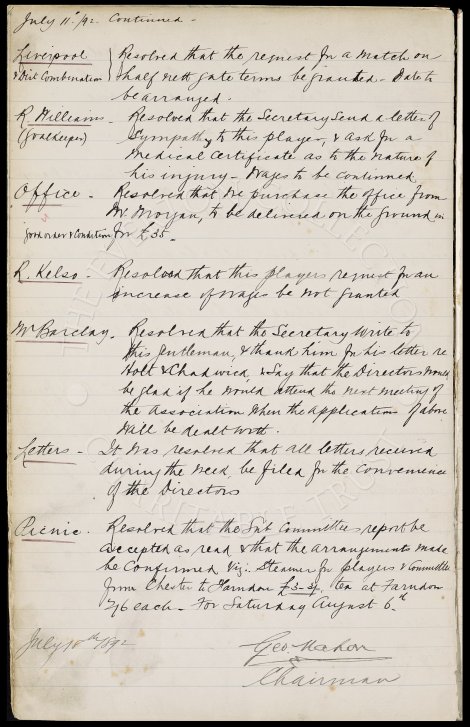 July 11th/92 Continued -
Liverpool
& Dist Combination
Resolved that the request for a match on
half nett gate terms be granted - Date to
be arranged.
R. Williams -
(Goalkeeper)
Resolved that the Secretary send a letter of
Sympathy to this player, & ask for a
Medical Certificate as to the nature of
his injury - Wages to be continued
Office -
good order & Condition
Resolved that we purchase the office from
Mr Morgan, to be delivered on the ground in
for £35 -
R. Kelso -
Resolved that this players request for an
increase of wages be not granted
Mr Barclay -
Resolved that the Secretary write to
this gentleman, & thank him for his letter re
Holt & Chadwick & say that the Directors would
be glad if he would attend the next meeting of
the Association when the applications of above
will be dealt with.
Letters -
It was resolved that all letters received
during the week, be filed for the convenience
of the Directors
Picnic -
Resolved that the Sub Committees report be
accepted as read & that the arrangements made
be Confirmed Viz. Steamer for players & Committee
from Chester to Farndon £3-3/-, tea at Farndon
2/6 each - For Saturday August 6th
July 18th 1892
Geo. Mahon
Chairman